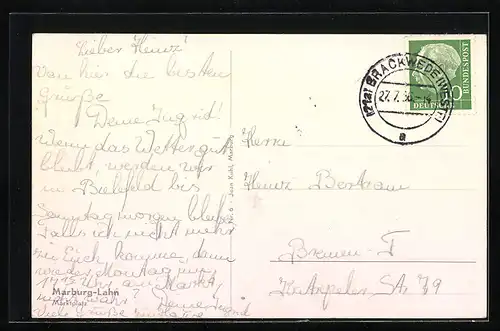 Lieber Heinz!
Von hier die besten
Grüße
Deine Ingrid!
Wenn das Wetter gut
bleibt, werden wir
in Bielefeld bis
Sonntagmorgen bleiben
Falls ich nicht mehr
zu Euch komme, dann
wieder Montag
17 15 Uhr am Markt,
nicht wahr? Deine Ingrid
Viele Grüße
Marburg-Lahn
Marktplatz
Nr. 6 - Jean Kohl, Marburg
(21a) BRACKWEDE (WESTF)
27.7.56
a
DEUTSCHE BUNDESPOST
10
Herrn
Heinz Bertram
Bremen - F
Str. 79